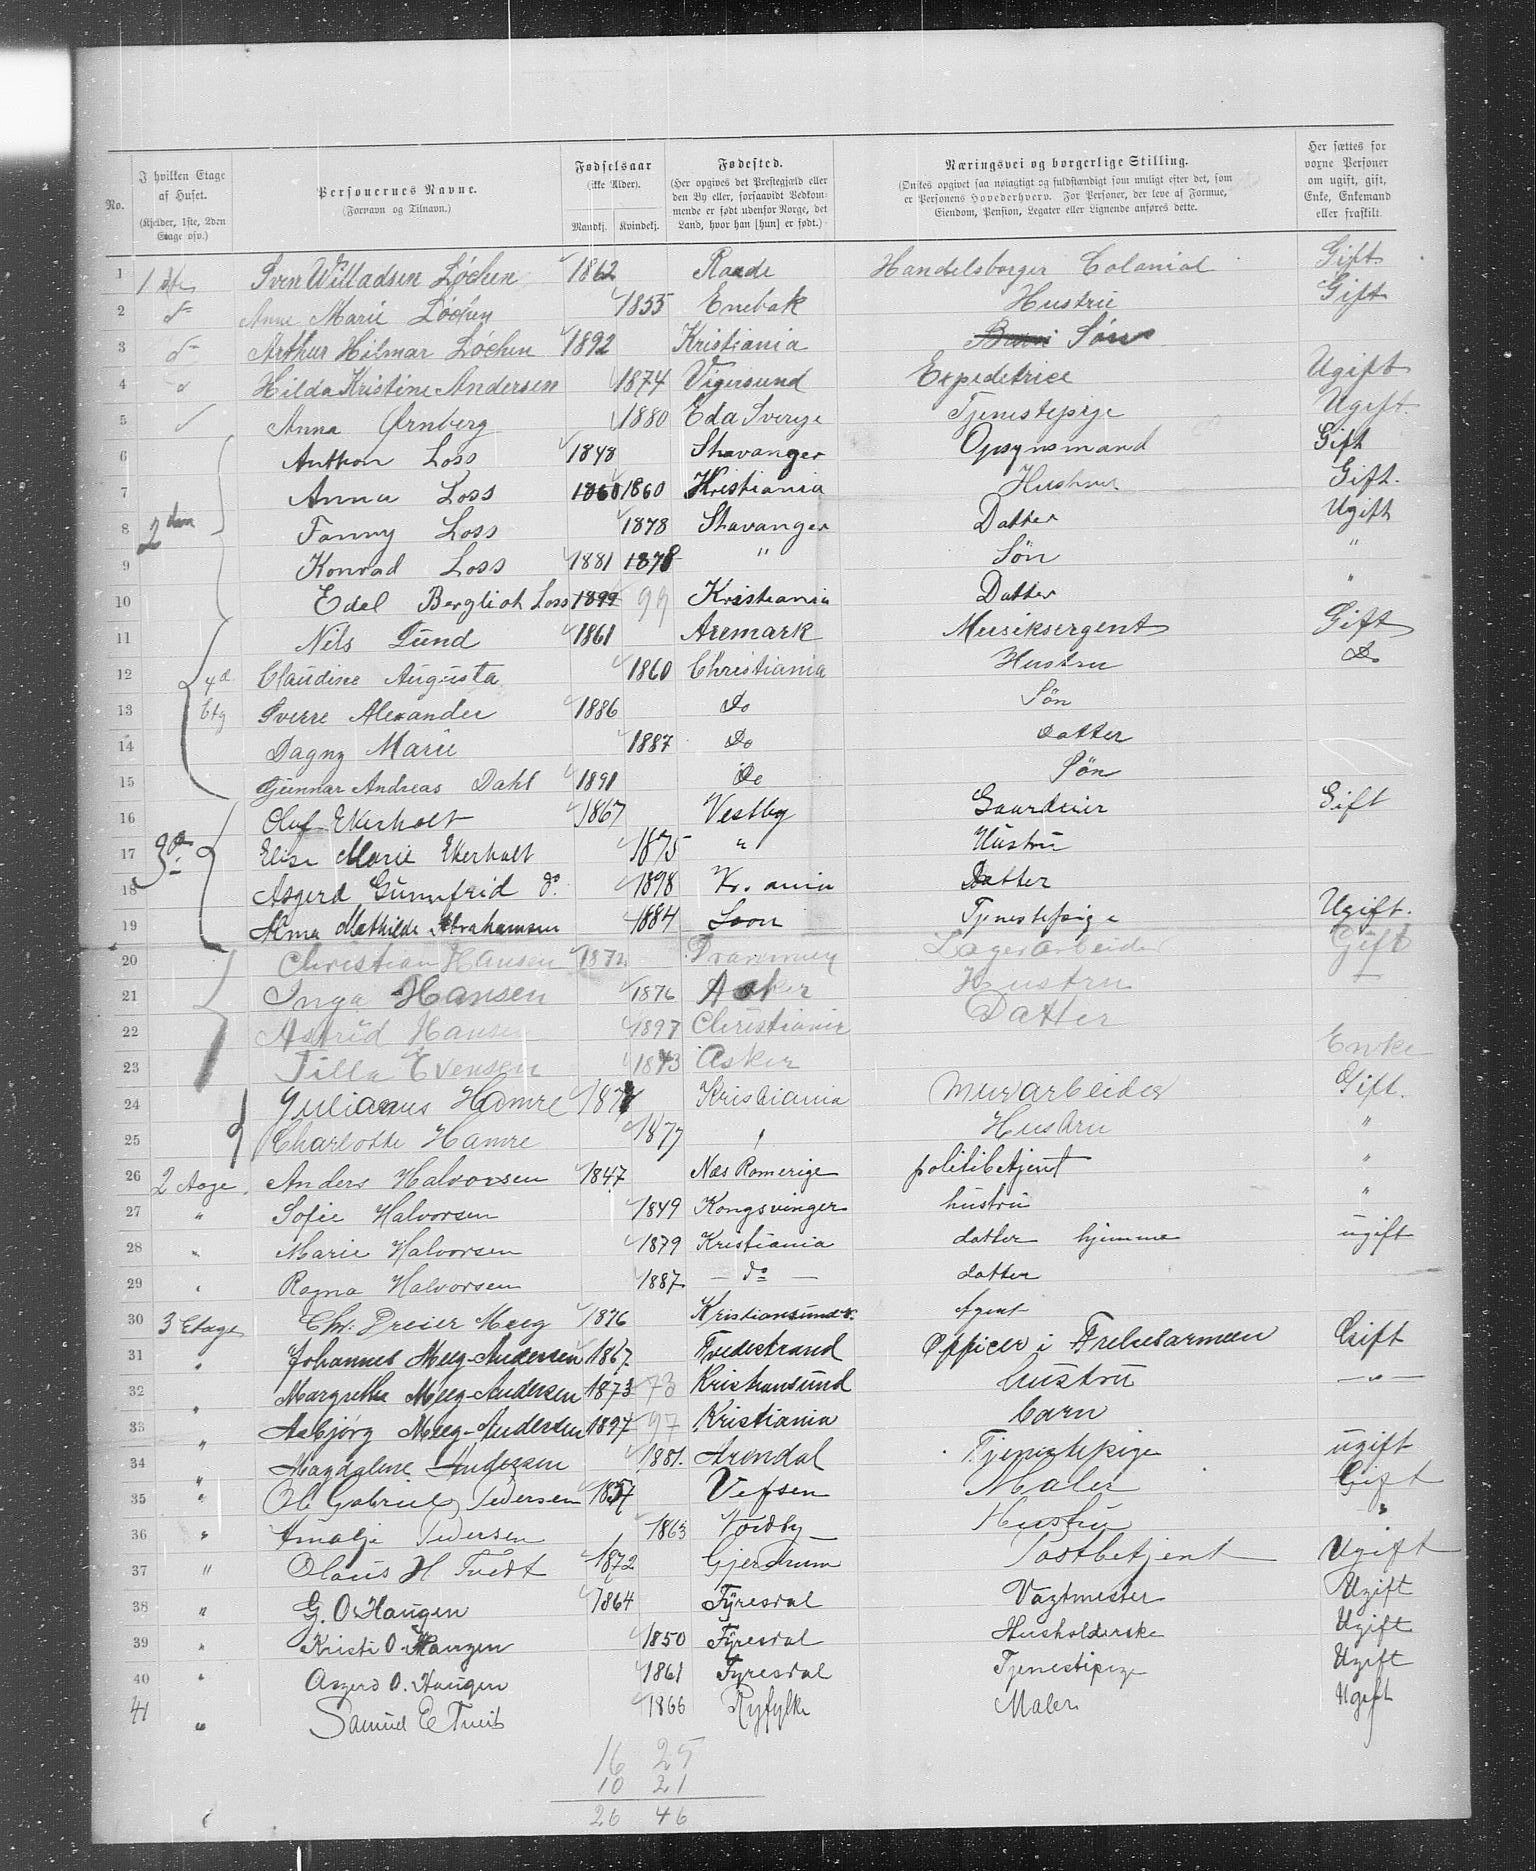 No.
I hvilken Etage af Huset.
(Kjelder, 1ste, 2den Etage osv.)
Personernes Navne.
(Fornavn og Tilnavn.)
Fødselsaar
(ikke Alder).
Mandkj. Kvindekj.
Fødested.
(Her opgives det Prestegjæld eller den By eller, forsaavidt Vedkommende er født udenfor Norge, det Land, hvor han [hun] er født.)
Næringsvei og borgerlige Stilling.
(Ønskes opgivet saa nøiagtigt og fuldstændigt som muligt efter det, som er Personens Hovederhverv. For Personer, der leve af Formue, Eiendom, Pension, Legater eller Lignende anføres dette.
Her sættes for voxne Personer om ugift, gift, Enke, Enkemand eller fraskilt.
1 1ste Sven Willadsen Løchen 1862 Raade Handelsborger Colonial Gift
2 do Anne Marie Løchen 1855 Enebak Hustru Gift
3 do Arthur Hilmar Løchen 1892 Kristiania Barn Søn
4 do Hilda Kristine Andersen 1874 Vigersund Expeditrice Ugift
5 Anna Ørnberg 1880 Eda Sverge Tjenestepige Ugift.
6 Anthon Loss 1848 Stavanger Opsynsmand Gift
7 Anna Loss 1860 1860 Kristiania Hustru Gift.
8 2den Fanny Loss 1878 Stavanger Datter Ugift
9 Konrad Loss 1881 1878 " Søn "
10 Edel Bergliot Loss 1899 99 Kristiania Datter "
11 Nils Lund 1861 Aremark Musiksergent Gift
12 4d Claudine Augusta 1860 Christiania Hustru Do
13 Etg Sverre Alexander 1886 Do Søn
14 Dagny Marie 1887 Do Datter
15 Gunnar Andreas Dahl 1891 Do Søn
16 Oluf Ekerholt 1867 Vestby Gaardeier Gift
17 3die Elise Marie Ekerholt 1875 " Hustru
18 Asgerd Gunnfrid do. 1898 Kr.ania Datter
19 Alma Mathilde Abrahamsen 1884 Soon Tjenestepige Ugift.
20 Christian Hansen 1872 Drammen Lagerarbeider Gift
21 Inga Hansen 1876 Asker Hustru
22 Astrid Hansen 1897 Christiania Datter
23 Tilla Evensen 1843 Asker Enke
24 Julianus Hamre 187 Kristiania Murarbeider Gift.
25 Charlotte Hamre 1877 " Hustru "
26 2 Etage Anders Halvorsen 1847 Næs Romerige politibetjent "
27 " Sofie Halvorsen 1849 Kongsvinger hustru "
28 " Marie Halvorsen 1879 Kristiania datter hjemme ugift
29 " Ragna Halvorsen 1887 — do — datter
30 3 Etage Chr. Dreier Meeg 1876 Kristianssund N. Agent
31 " Johannes Meeg-Andersen 1867 Tvedestrand Officer i Frelsesarmeen Gift
32 " Margrethe Meeg-Andersen 1873 73 Kristiansund hustru — " —
33 " Asbjørg Meeg-Andersen 1897 97 Kristiania barn
34 " Magdalene Andersen 1881. Arendal Tjenestepige ugift
35 " Ole Gabriel Pedersen 1857 Vefsen Maler Gift
36 " Amalje Pedersen 1863 Nordby Hustru "
37 " Olaus H Tvedt 1872 Gjerdrum Postbetjent Ugift
38 " G. O Haugen 1864 Fyresdal Vagtmester Ugift
39 " Kristi O. Haugen 1850 Fyresdal Husholderske Ugift
40 " Asgerd O. Haugen 1861 Fyresdal Tjenestepige Ugift
41 " Samuel E Tveit 1866 Ryfylke Maler Ugift
16 25
10 21
26 46